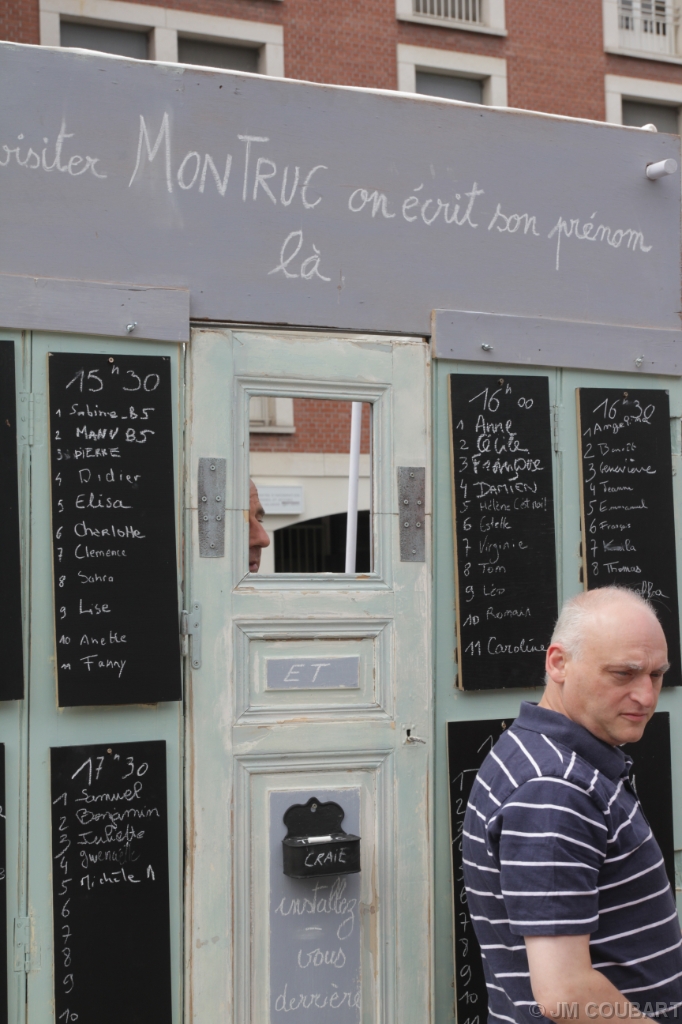 visiter MONTRUC on écrit son prénom
là
15 h 30
1 Sabine_B5
2 MANU B5
3 PIERRE
4 Didier
5 Elisa
6 Charlotte
7 Clemence
8 Sahra
9 Lise
10 Anette
11 Fanny
16 h 00
1 Anne
2 Cécile
3 Françoise
4 DAMIEN
5 Hélène
6 Estelle
7 Virginie
8 Tom
9 Léo
10 Romain
11 Caroline
16 h 30
1
2 Benoit
3 Geneviève
4 Jeanne
5 Emmanuel
6 François
7
8 Thomas
ET
CRAIE
installez
-vous
derrière
17 h 30
1 Samuel
2 Benjamin
3 Juliette
4 gwenaelle
5 Michèle
6
7
8
9
10
© JM COUBART